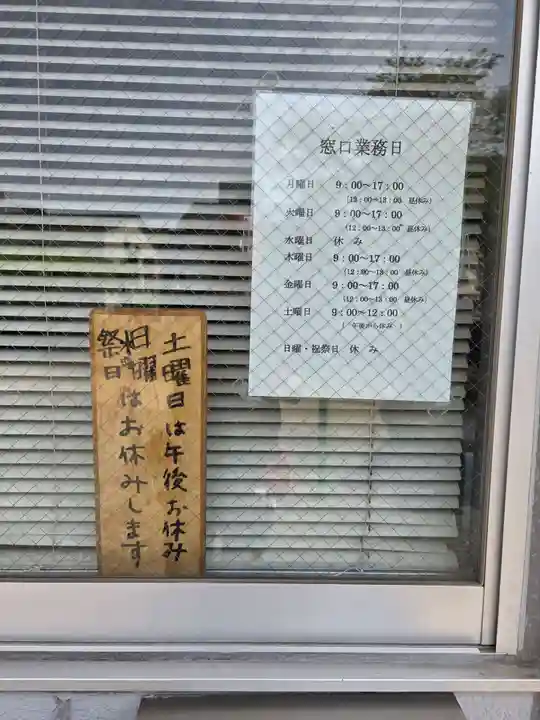 窓口業務日
月曜日 9:00～17:00
(12:00～13:00 昼休み)
火曜日 9:00～17:00
(12:00～13:00 昼休み)
水曜日 休み
木曜日 9:00～17:00
(12:00～13:00 昼休み)
金曜日 9:00～17:00
(12:00～13:00 昼休み
土曜日 9:00～12:00
( 午後から休み)
日曜・祝祭日 休み
土曜日は午後お休み
日曜
祭日
はお休みします